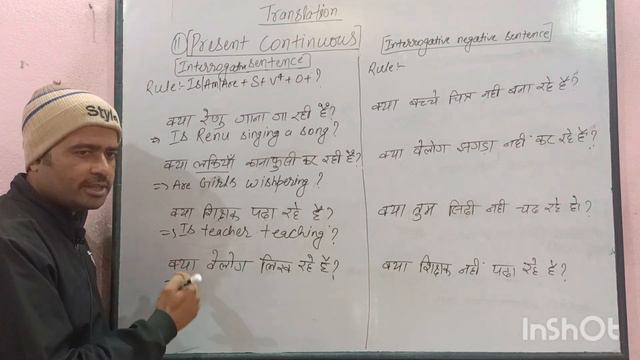 Translation
(1) Present Continuous
Interrogative sentence
Rule:- Is/Am/Are + S + V⁴ + O + ?
क्या रेणु गाना गा रही है?
=> Is Renu singing a song?
क्या लकियाँ कानाफुसी कर रही है?
=> Are Girls wishpering?
क्या शिक्षक पढ़ा रहे है?
=> Is teacher teaching?
क्या वेलोग लिख रहे है?
Interrogative negative sentence
Rule:-
क्या बच्चे चित्र नही बना रहे है?
क्या वेलोग झगड़ा नहीं कर रहे है?
क्या तुम सिढ़ी नही चढ़ रहे हो?
क्या शिक्षक नहीं पढ़ा रहे है?
Style
InShOt